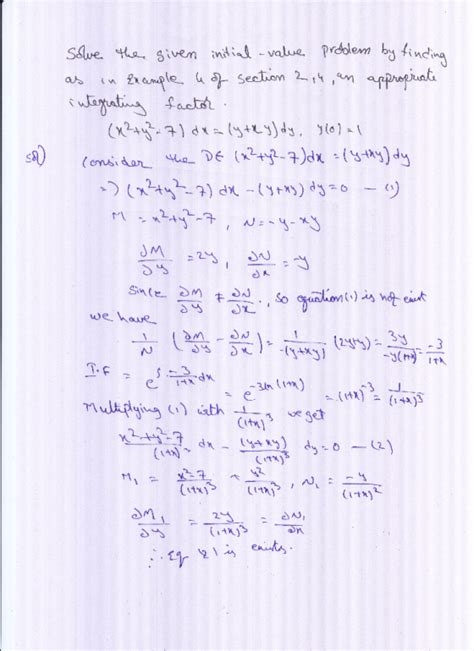 Solve the given initial-value problem by finding
as in Example 4 of section 2.4, an appropriate
integrating factor.
(x²+y²-7) dx = (y+xy)dy, y(0)=1
sol) Consider the DE (x²+y²-7)dx = (y+xy)dy
=) (x²+y²-7) dx - (y+xy) dy=0 — (1)
M = x²+y²-7, N=-y-xy
∂M/∂y = 2y, ∂N/∂x = -y
Since ∂M/∂y ≠ ∂N/∂x, so equation(1) is not exist
we have
1/N (∂M/∂y - ∂N/∂x) = 1/-(y+xy) (2y+y) = 3y/-y(1+x) = -3/1+x
I.F = e^∫-3/1+x dx = e^-3ln(1+x) = (1+x)^-3 = 1/(1+x)³
Multiplying (1) with 1/(1+x)³ we get
x²+y²-7/(1+x)³ dx - (y+xy)/(1+x)³ dy=0 — (2)
M₁ = x²-7/(1+x)³ + y²/(1+x)³, N₁ = -y/(1+x)²
∂M₁/∂y = 2y/(1+x)³ = ∂N₁/∂x
∴ Eq (2) is exists.